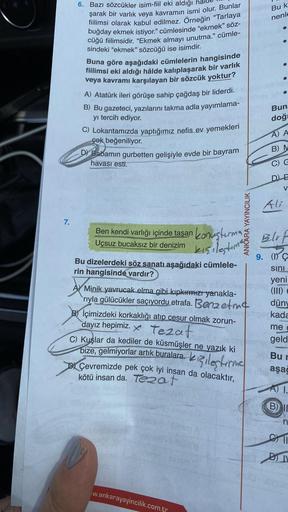 6. Bazı sözcükler isim-fiil eki aldığı
şarak bir varlık veya kavramın ismi olur. Bunlar
fiilimsi olarak kabul edilmez. Örneğin "Tarlaya
buğday ekmek istiyor." cümlesinde "ekmek" söz-
cüğü fiilimsidir. "Ekmek almayı unutma." cümle-
sindeki "ekmek" sözcüğü ise isimdir.
Buna göre aşağıdaki cümlelerin hangisinde
fiilimsi eki aldığı hâlde kalıplaşarak bir varlık
veya kavramı karşılayan bir sözcük yoktur?
A) Atatürk ileri görüşe sahip çağdaş bir liderdi.
B) Bu gazeteci, yazılarını takma adla yayımlama-
yı tercih ediyor.
C) Lokantamızda yaptığımız nefis ev yemekleri
çok beğeniliyor.
D) Babamın gurbetten gelişiyle evde bir bayram
havası esti.
7.
Ben kendi varlığı içinde taşan konuşturma
Uçsuz bucaksız bir denizim kişileştirme
Bu dizelerdeki söz sanatı aşağıdaki cümlele-
rin hangisinde vardır?
A) Minik yavrucak elma gibi kıpkırmızı yanakla-
rıyla gülücükler saçıyordu etrafa. Benzetme
B) İçimizdeki korkaklığı atıp cesur olmak zorun-
dayız hepimiz. x Tezat
C) Kuşlar da kediler de küsmüşler ne yazık ki
bize, gelmiyorlar artık buralara. kişileştirme
D) Çevremizde pek çok iyi insan da olacaktır,
kötü insan da. Tezat
w.ankarayayincilik.com.tr
ANKARA YAYINCILIK
Bu k
Bun
A) A
B)
C)
D)
Ali
9. (I)
sını
yeni
(III)
düny
kada
me
geld
Bu
aşağ
A) I.
B) II